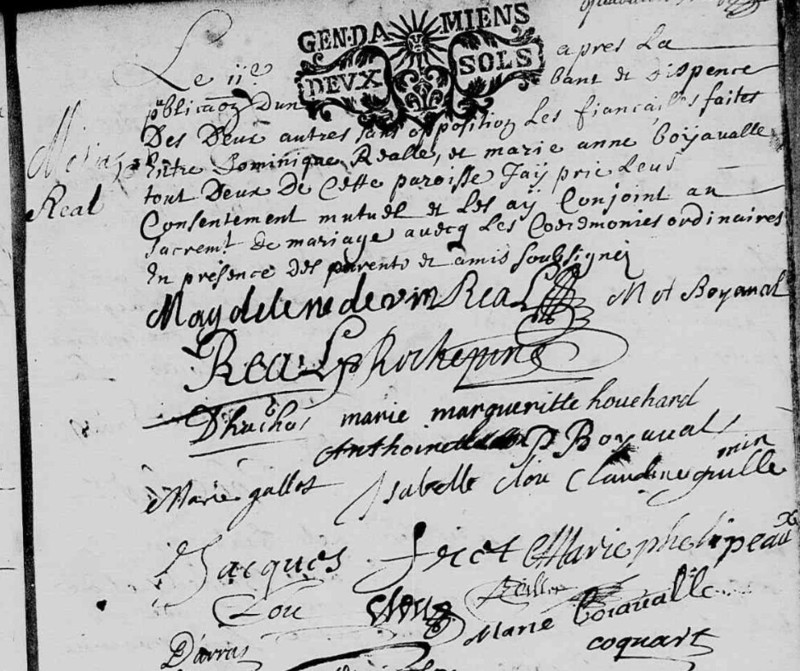 GEN.DAMIENS
DEVX SOLS
Le iie apres La
publicaõn Dun banc et dispence
Des Deux autres sans opposition Les fiançailles faites
Entre Dominique Realle, et marie anne Boÿavalle
tout Deux de Cette paroisse Jaÿ pric Leur
Consentement mutuel et Les aÿ Conjoint au
sacremt de mariage avecq Les Cocremonies ordinaires
En présence des parents et amis soubsignéz
Mariage
Real
Magdelene devin ReaL M ot Boyaval
ReaL Rochepine
marie margueritte houchard
Anthoine Boyaval
Marie gallot Isabelle Clou Claudine guille
min
Jacques ficet Marie phelipeaux
Clou
Marie Boiavalle
Darras coquart